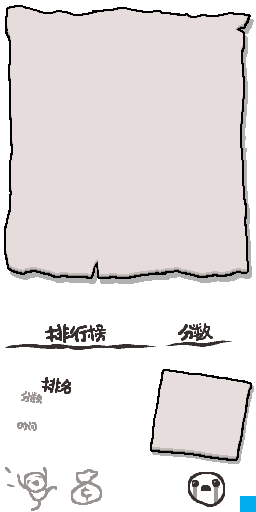 排行榜 分数
排名
分数
时间